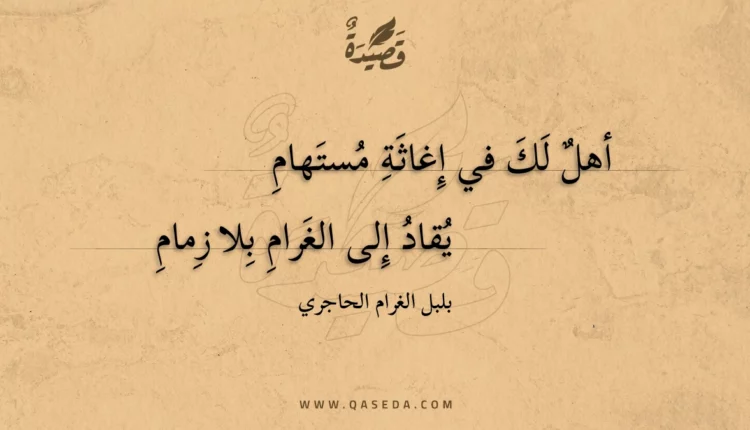 قَصِيدَةٌ
أهلٌ لَكَ في إِغاثَةِ مُستَهامِ
يُقادُ إِلى الغَرامِ بِلا زِمامِ
بلبل الغرام الحاجري
WWW.QASEDA.COM